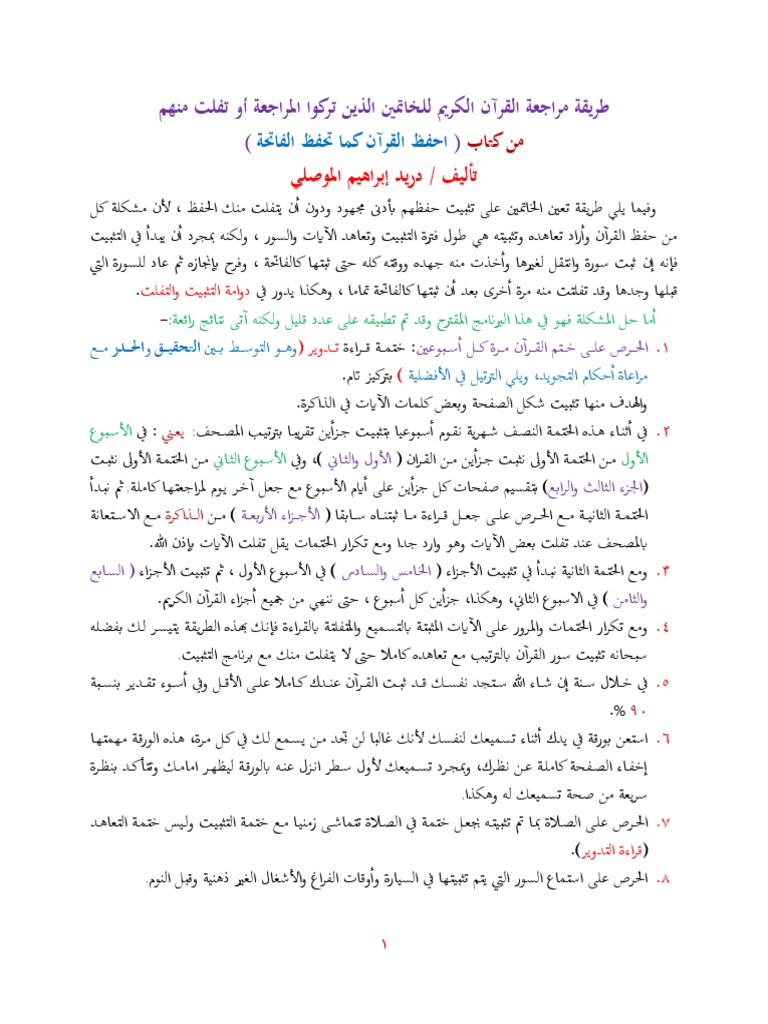 طريقة مراجعة القرآن الكريم للخاتمين الذين تركوا المراجعة أو تفلت منهم
من كتاب ( احفظ القرآن كما تحفظ الفاتحة )
تأليف / دريد إبراهيم الموصلي
وفيما يلي طريقة تعين الخاتمين على تثبيت حفظهم بأدنى مجهود ودون أن يتفلت منك الحفظ ، لأن مشكلة كل
من حفظ القرآن وأراد تعاهده وتثبيته هي طول فترة التثبيت وتعاهد الآيات والسور ، ولكنه بمجرد أن يبدأ في التثبيت
فإنه إن ثبت سورة وانتقل لغيرها وأخذت منه جهده ووقته كله حتى ثبتها كالفاتحة ، وفرح بإنجازه ثم عاد للسورة التي
قبلها وجدها وقد تفلتت منه مرة أخرى بعد أن ثبتها كالفاتحة تماما ، وهكذا يدور في دوامة التثبيت والتفلت.
أما حل المشكلة فهو في هذا البرنامج المقترح وقد تم تطبيقه على عدد قليل ولكنه آتى نتائج رائعة:-
١. الحرص على ختم القرآن مرة كل أسبوعين: ختمة قراءة تدوير (وهو التوسط بين التحقيق والحدر مع
مراعاة أحكام التجويد، ويلي الترتيل في الأفضلية ) بتركيز تام.
والهدف منها تثبيت شكل الصفحة وبعض كلمات الآيات في الذاكرة.
٢. في أثناء هذه الختمة النصف شهرية نقوم أسبوعيا بتثبيت جزأين تقريبا بترتيب المصحف: يعني : في الأسبوع
الأول من الختمة الأولى نثبت جزأين من القران ( الأول والثاني )، وفي الأسبوع الثاني من الختمة الأولى نثبت
(الجزء الثالث والرابع) بتقسيم صفحات كل جزأين على أيام الأسبوع مع جعل آخر يوم لمراجعتها كاملة. ثم نبدأ
الختمة الثانية مع الحرص على جعل قراءة ما ثبتناه سابقا ( الأجزاء الأربعة ) من الذاكرة مع الاستعانة
بالمصحف عند تفلت بعض الآيات وهو وارد جدا ومع تكرار الختمات يقل تفلت الآيات بإذن الله.
٣. ومع الختمة الثانية نبدأ في تثبيت الأجزاء ( الخامس والسادس ) في الأسبوع الأول ، ثم تثبيت الأجزاء ( السابع
والثامن ) في الاسبوع الثاني، وهكذا، جزأين كل أسبوع ، حتى ننهي من جميع أجزاء القرآن الكريم.
٤. ومع تكرار الختمات والمرور على الآيات المثبتة بالتسميع والمتفلتة بالقراءة فإنك بهذه الطريقة يتيسر لك بفضله
سبحانه تثبيت سور القرآن بالترتيب مع تعاهده كاملا حتى لا يتفلت منك مع برنامج التثبيت.
٥. في خلال سنة إن شاء الله ستجد نفسك قد ثبت القرآن عندك كاملا على الأقل وفي أسوء تقدير بنسبة
٩٠ %.
٦. استعن بورقة في يدك أثناء تسميعك لنفسك لأنك غالبا لن تجد من يسمع لك في كل مرة، هذه الورقة مهمتها
إخفاء الصفحة كاملة عن نظرك، وبمجرد تسميعك لأول سطر انزل عنه بالورقة ليظهر امامك وتتأكد بنظرة
سريعة من صحة تسميعك له وهكذا.
٧. الحرص على الصلاة بما تم تثبيته بجعل ختمة في الصلاة تتماشى زمنيا مع ختمة التثبيت وليس ختمة التعاهد
(قراءة التدوير).
٨. الحرص على استماع السور التي يتم تثبيتها في السيارة وأوقات الفراغ والأشغال الغير ذهنية وقبل النوم.
١